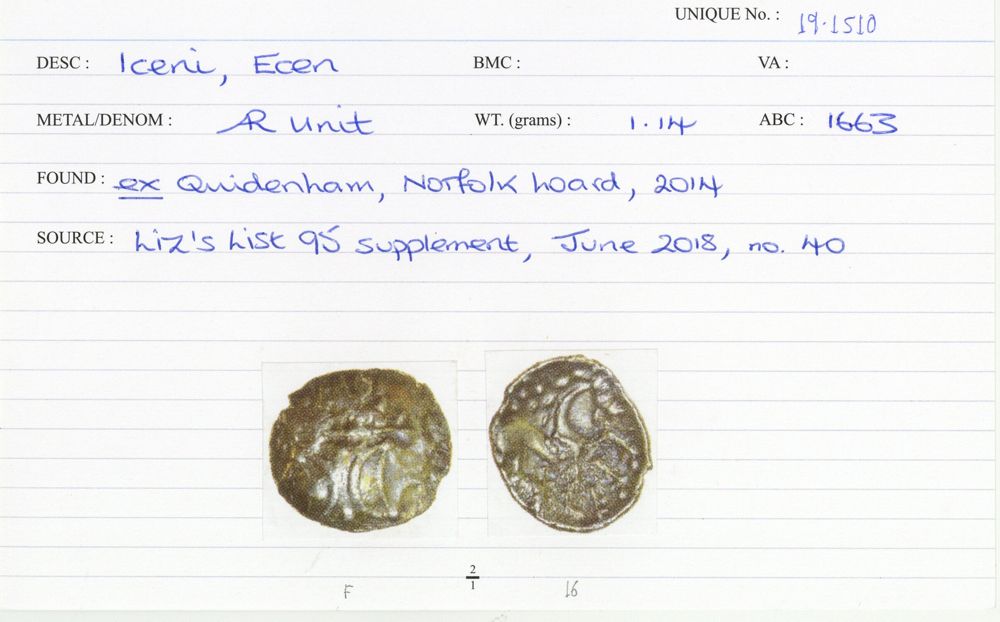 UNIQUE No. : 19.1510
DESC : Iceni, Ecen BMC : VA :
METAL/DENOM : AR unit WT. (grams) : 1.14 ABC : 1663
FOUND : ex Quidenham, Norfolk hoard, 2014
SOURCE : Liz's List 95 supplement, June 2018, no. 40
2/1
F 16